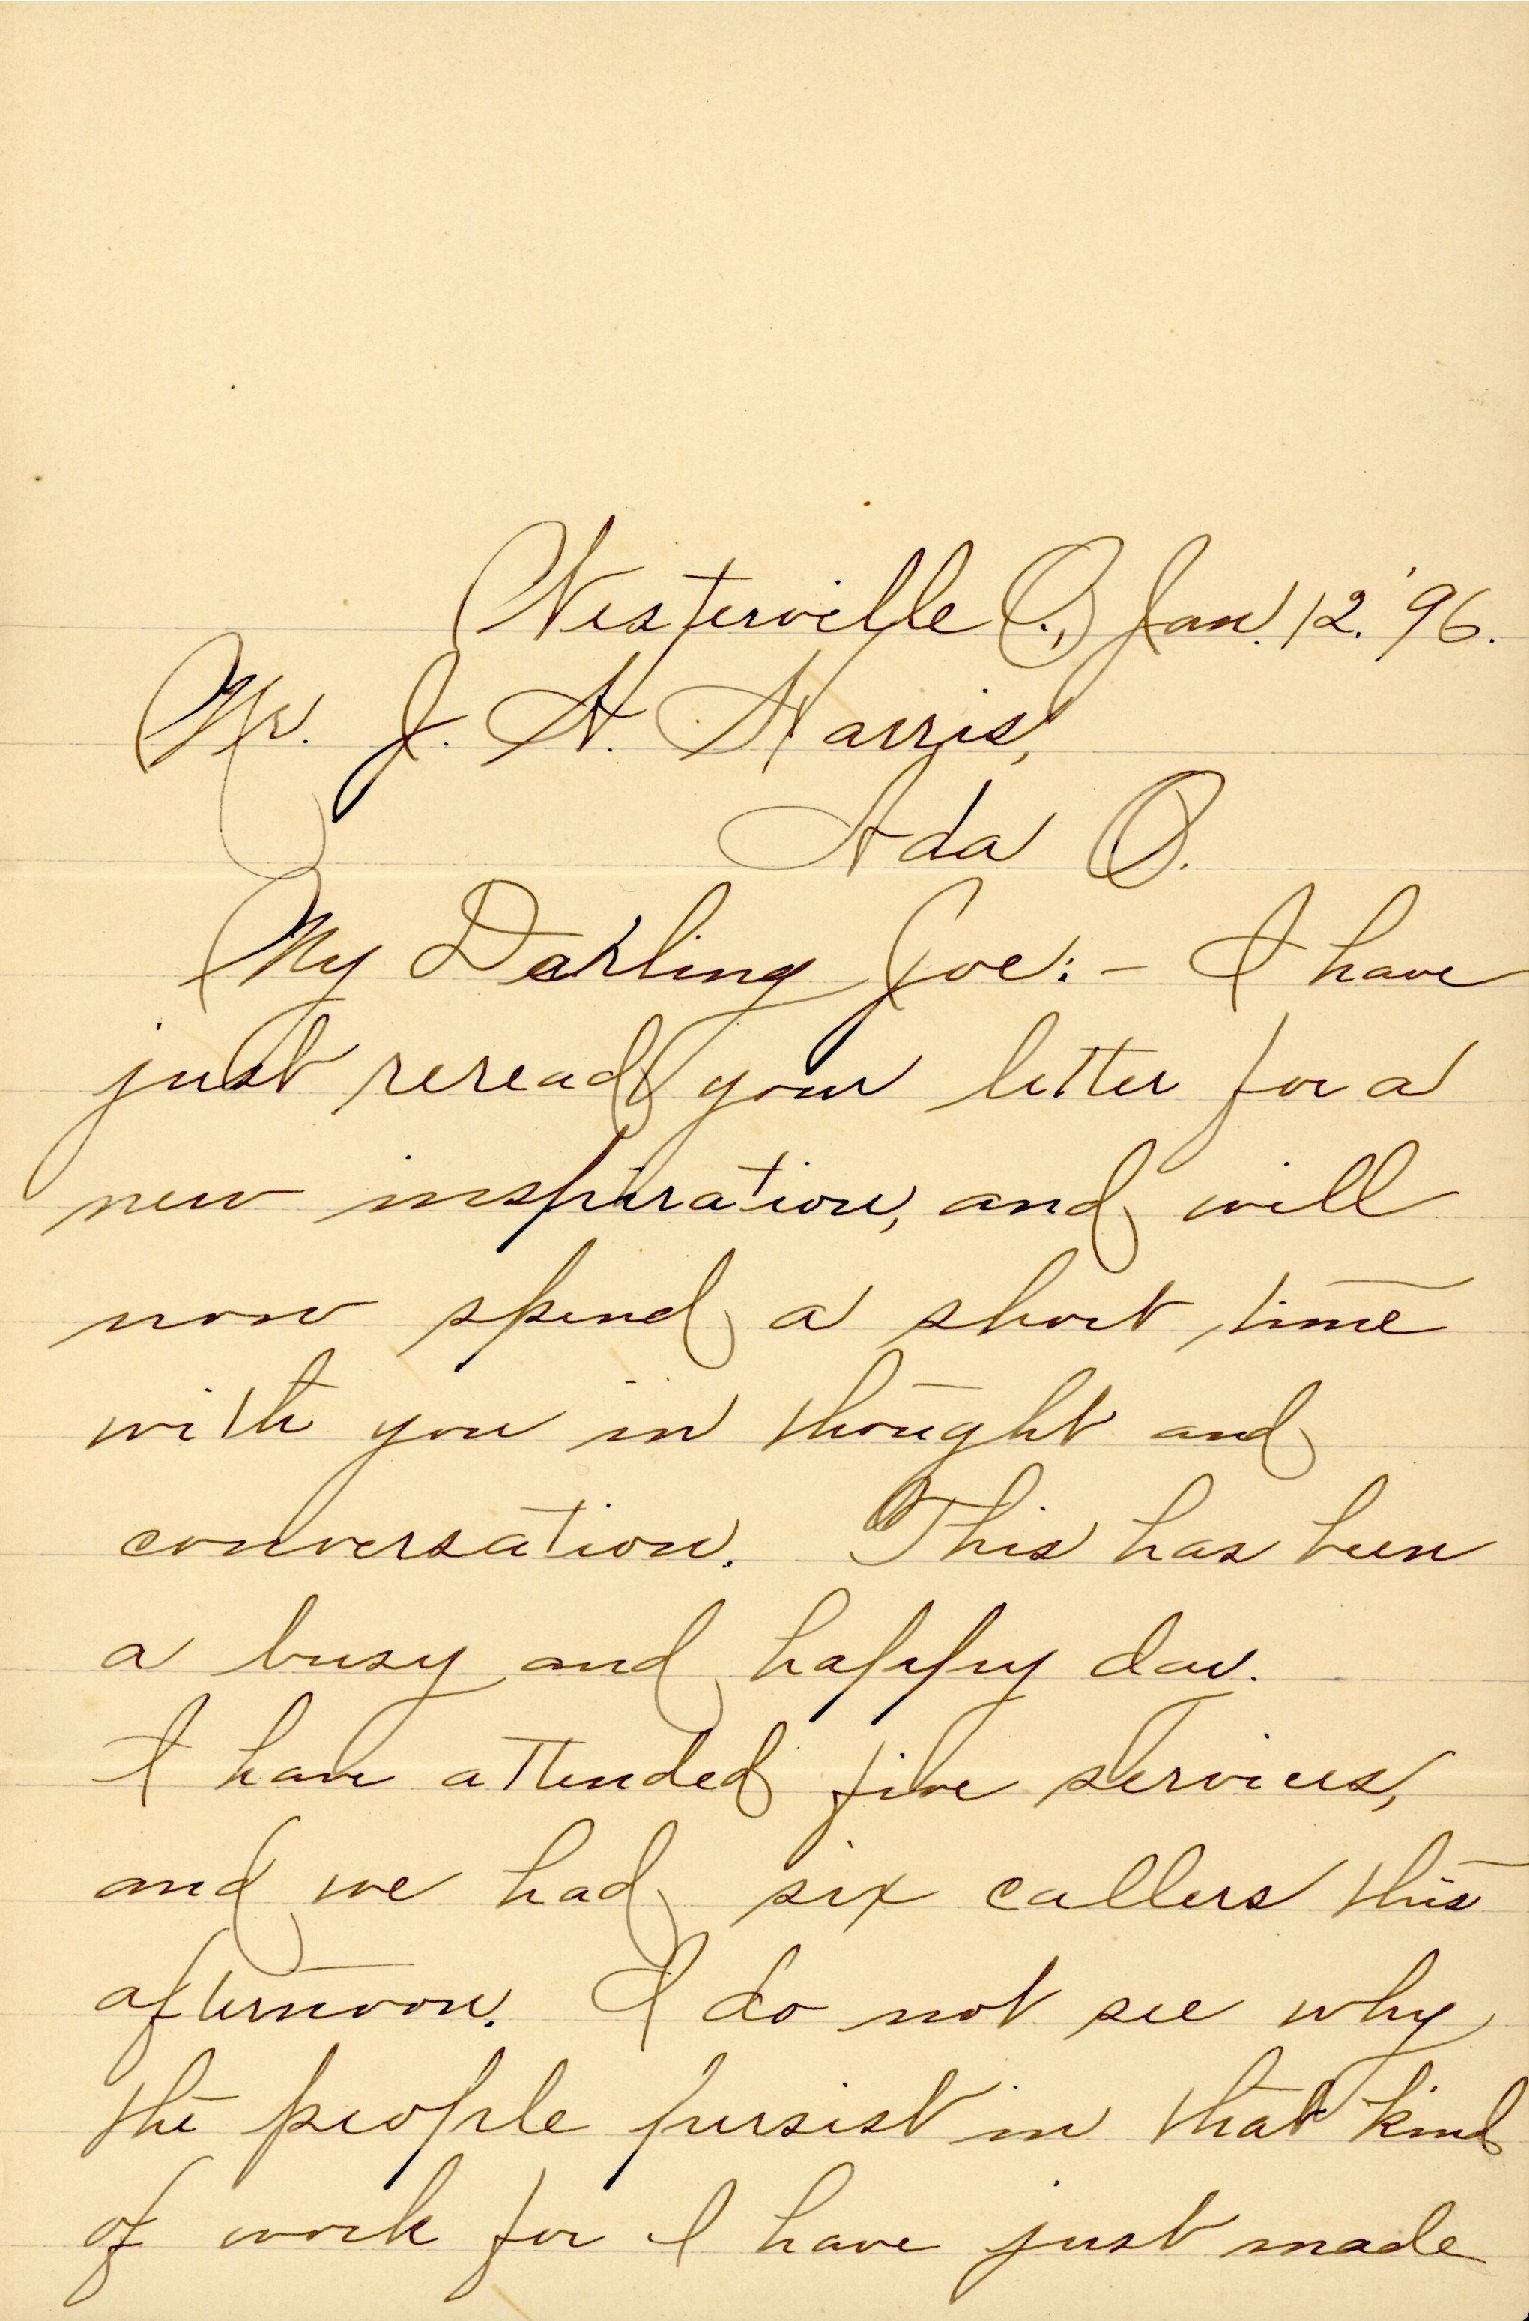 Westerville O., Jan. 12. '96.
Mr. J. H. Harris,
Ada O.
My Darling Joe:- I have
just reread your letter for a
new inspiration, and will
now spend a short time
with you in thought and
conversation. This has been
a busy and happy day.
I have attended five services,
and we had six callers this
afternoon. I do not see why
the people persist in that kind
of work for I have just made